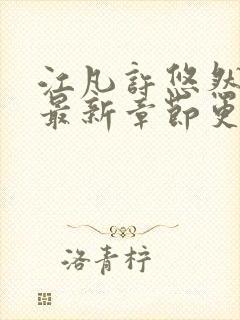 江凡许悠然
最新章节更
洛青柠